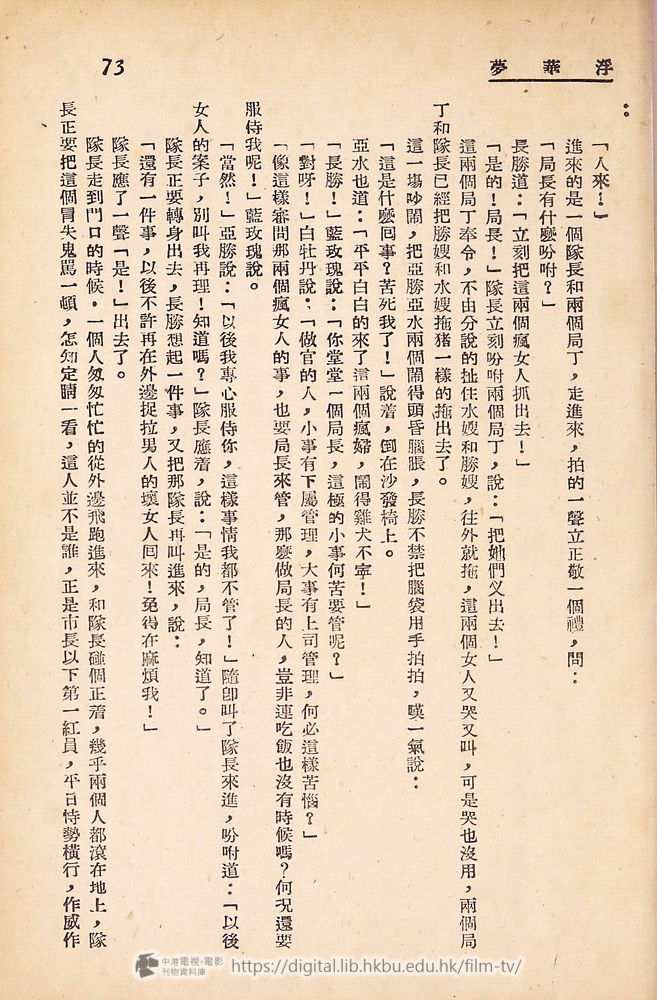 浮華夢
73
：
「人來！」
進來的是一個隊長和兩個局丁，走進來，拍的一聲立正敬一個禮，問：
「局長有什麼吩咐？」
長勝道：「立刻把這兩個瘋女人抓出去！」
「是的！局長！」隊長立刻吩咐兩個局丁，說：「把她們叉出去！」
這兩個局丁奉令，不由分說的扯住水嫂和勝嫂，往外就拖，這兩個女人又哭又叫，可是哭也沒用，兩個局
丁和隊長已經把勝嫂和水嫂拖猪一樣的拖出去了。
這一塲吵鬧，把亞勝亞水兩個鬧得頭昏腦脹，長勝不禁把腦袋用手拍拍，嘆一氣說：
「這是什麼囘事？苦死我了！」說着，倒在沙發椅上。
亞水也道：「平平白白的來了這兩個瘋婦，鬧得雞犬不寧！」
「長勝！」藍玫瑰說：「你堂堂一個局長，這極的小事何苦要管呢？」
「對呀！」白牡丹說：「做官的人，小事有下屬管理，大事有上司管理，何必這樣苦惱？」
「像這樣審問那兩個瘋女人的事，也要局長來管，那麼做局長的人，豈非連吃飯也沒有時候嗎？何况還要
服侍我呢！」藍玫瑰說。
「當然！」亞勝說：「以後我專心服侍你，這樣事情我都不管了！」隨卽叫了隊長來進，吩咐道：「以後
女人的案子，別叫我再理！知道嗎？」隊長應着，說：「是的，局長，知道了。」
隊長正要轉身出去，長勝想起一件事，又把那隊長再叫進來，說：
「還有一件事，以後不許再在外邊捉拉男人的壞女人囘來！免得在麻煩我！」
隊長應了一聲「是！」出去了。
隊長走到門口的時候。一個人匆匆忙忙的從外邊飛跑進來，和隊長碰個正着，幾乎兩個人都滾在地上，隊
長正要把這個冒失鬼駡一頓，怎知定睛一看，這人並不是誰，正是市長以下第一紅員，平日恃勢橫行，作威作
中港電視・電影
刊物資料庫
https://digital.lib.hkbu.edu.hk/film-tv/